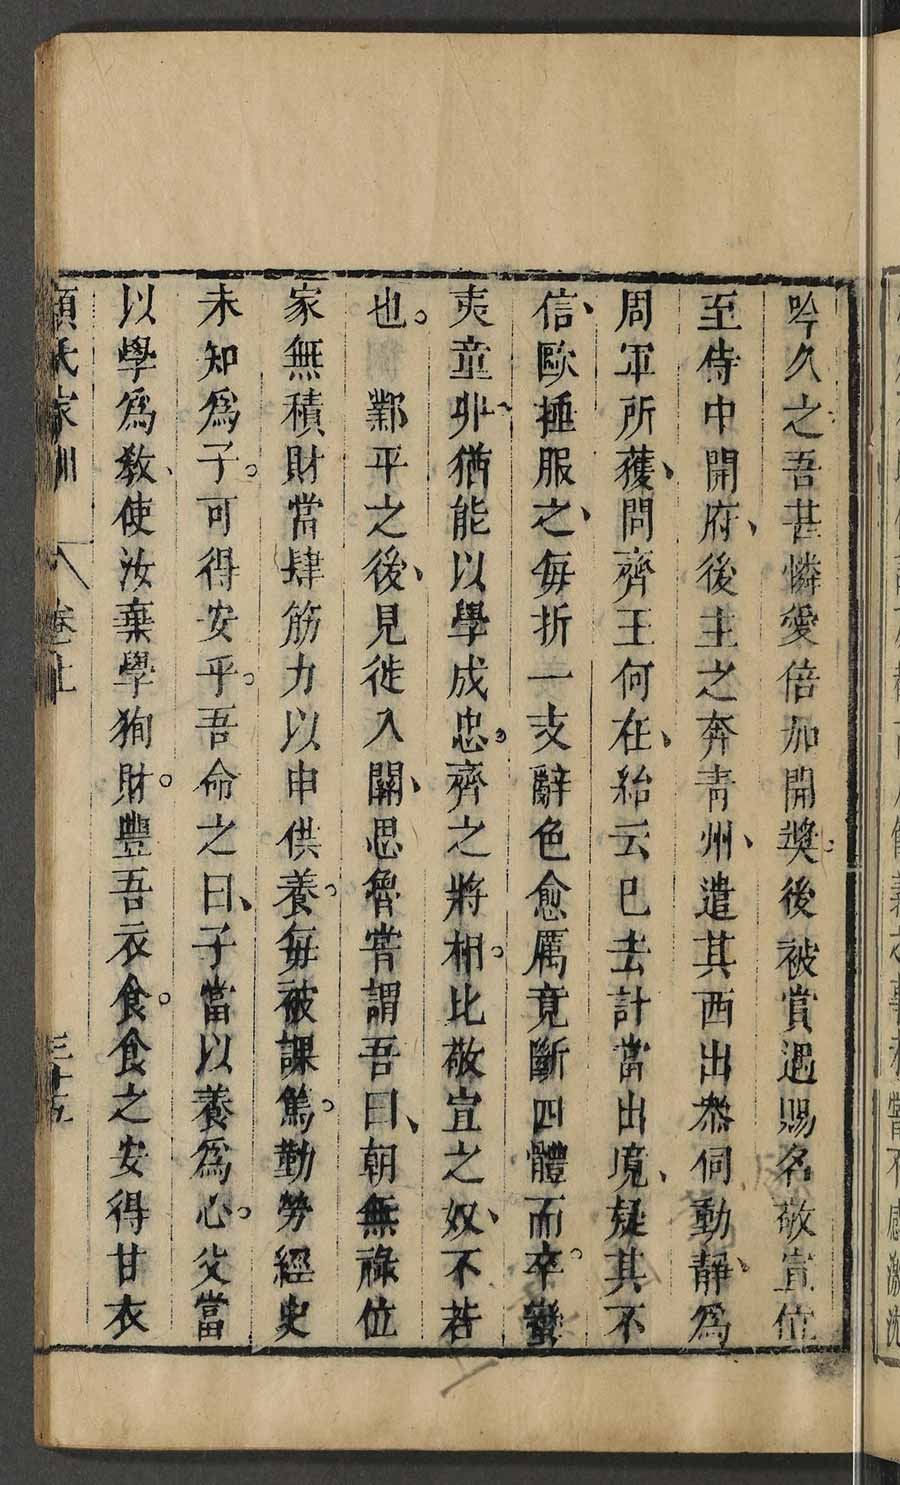 吟久之吾甚憐愛倍加開奬後被賞遇賜名敬宣位
至侍中開府、後主之奔青州、遣其西出叅伺動靜、爲
周軍所獲、問齊王何在、紿云已去計當出境、疑其不
信、歐捶服之、每折一支辭色愈厲竟斷四體而卒。蠻
夷童丱、猶能以學成忠。齊之將相。比敬宣之奴、不若
也。 鄴平之後、見徙入關、思魯甞謂吾曰、朝無祿位
家無積財當肆筋力以申供養。每被課篤。勤勞經史
未知爲子。可得安乎。吾命之曰、子當以養爲心。父當
以學爲教、使汝棄學狥財。豐吾衣食。食之安得甘衣
顏氏家訓 卷上 三十五